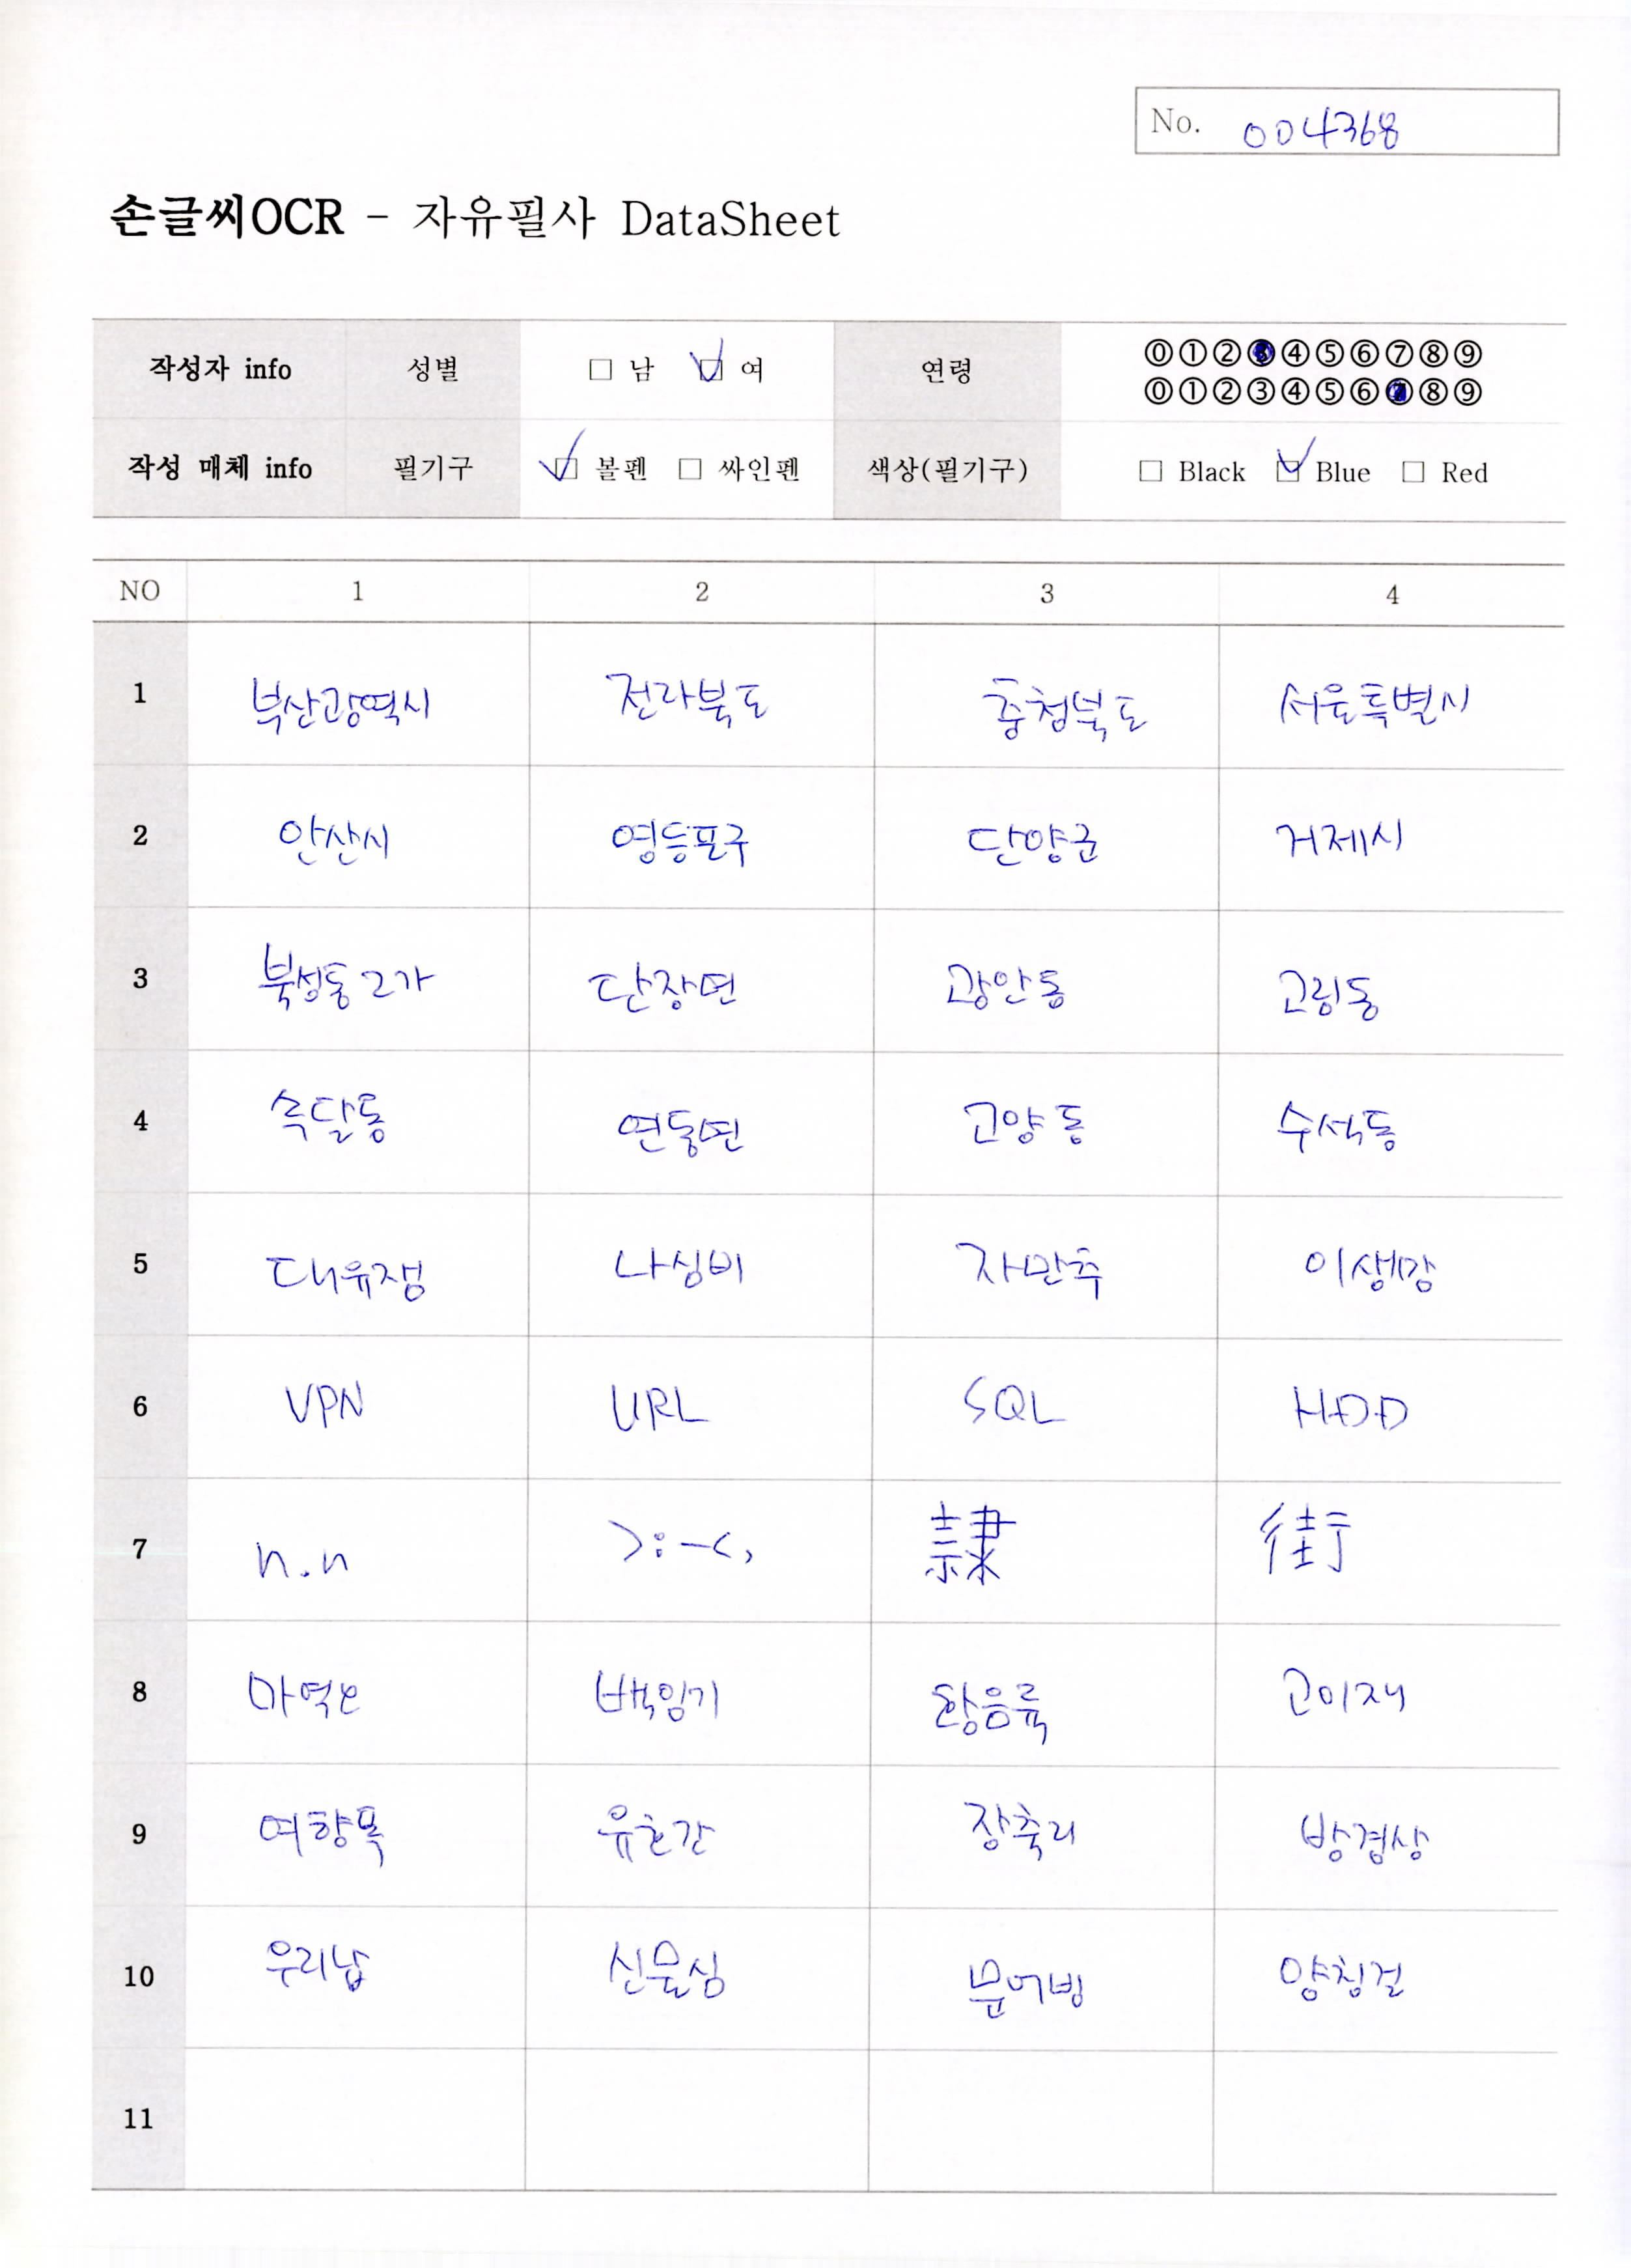 No. 004368
손글씨OCR - 자유필사 DataSheet
작성자 info 성별 □ 남 ☑ 여 연령 ⓪①②③④⑤⑥⑦⑧⑨
⓪①②③④⑤⑥⑦⑧⑨
작성 매체 info 필기구 ☑ 볼펜 □ 싸인펜 색상(필기구) □ Black ☑ Blue □ Red
NO 1 2 3 4
1 부산광역시 전라북도 충청북도 서울특별시
2 안산시 영등포구 단양군 거제시
3 북성동2가 단장면 광안동 고림동
4 속달동 연동면 고양동 수석동
5 대유잼 나심비 자만추 이생망
6 VPN URL SQL HDD
7 n.n >:-<, 隷 街
8 마역오 백임기 황음륙 고이재
9 여향목 유흔간 장축리 방겸상
10 우리납 신물심 문어빙 양칭걸
11